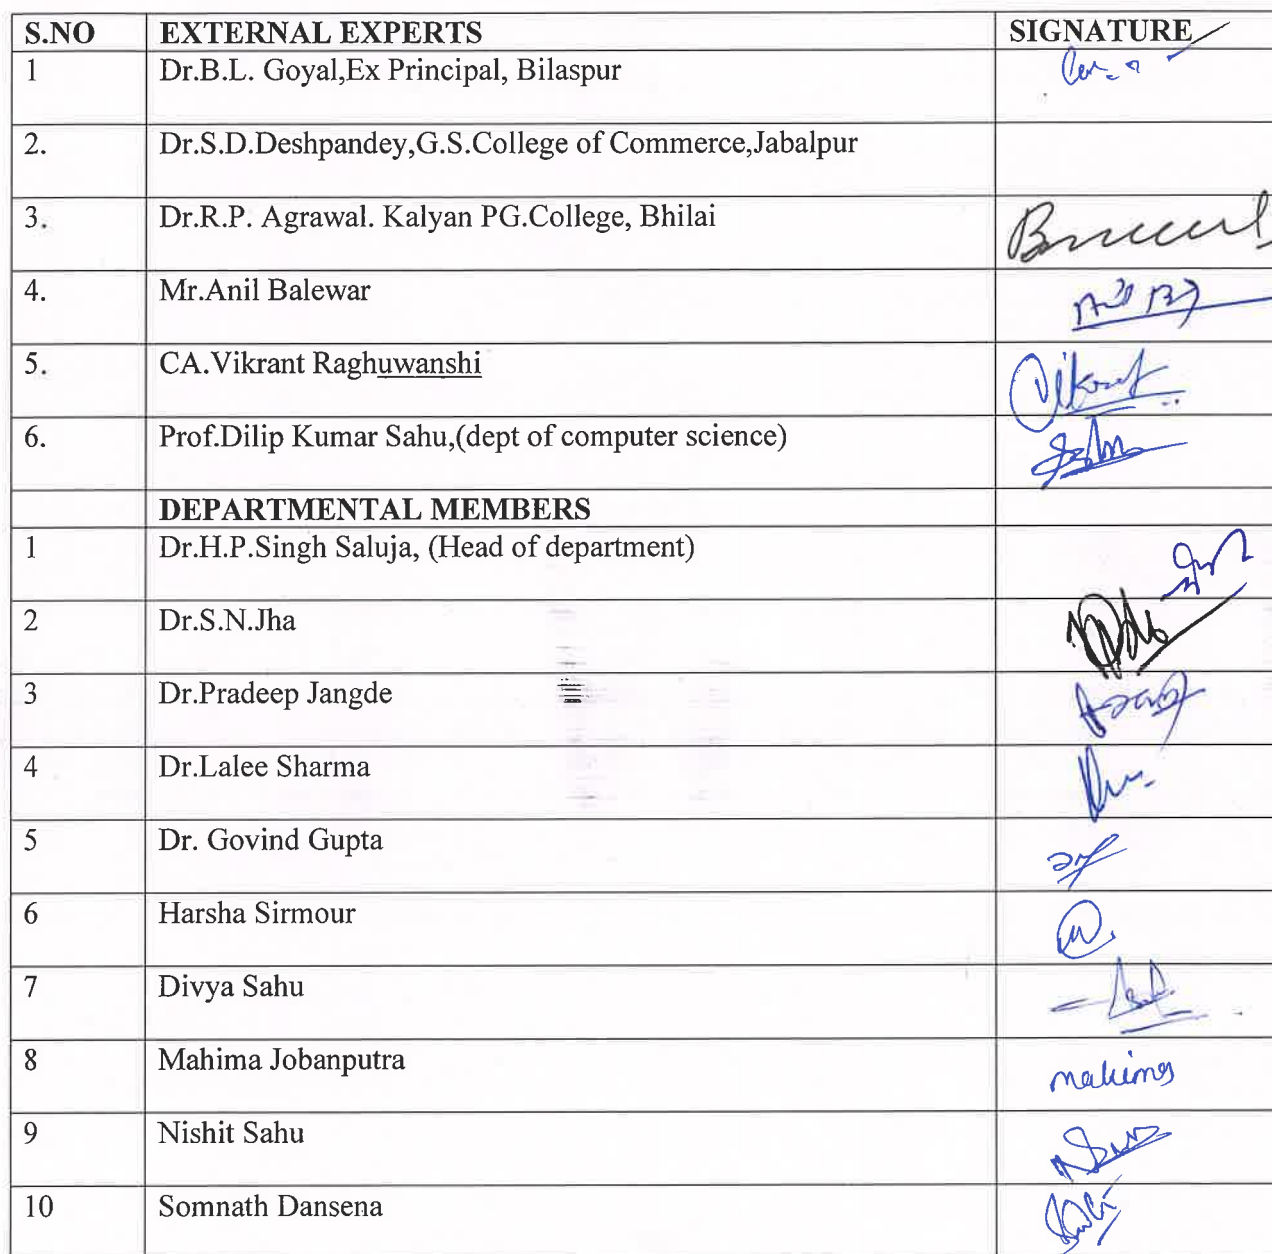 S.NO EXTERNAL EXPERTS SIGNATURE
1 Dr.B.L. Goyal,Ex Principal, Bilaspur
2. Dr.S.D.Deshpandey,G.S.College of Commerce,Jabalpur
3. Dr.R.P. Agrawal. Kalyan PG.College, Bhilai
4. Mr.Anil Balewar
5. CA.Vikrant Raghuwanshi
6. Prof.Dilip Kumar Sahu,(dept of computer science)
DEPARTMENTAL MEMBERS
1 Dr.H.P.Singh Saluja, (Head of department)
2 Dr.S.N.Jha
3 Dr.Pradeep Jangde
4 Dr.Lalee Sharma
5 Dr. Govind Gupta
6 Harsha Sirmour
7 Divya Sahu
8 Mahima Jobanputra
9 Nishit Sahu
10 Somnath Dansena